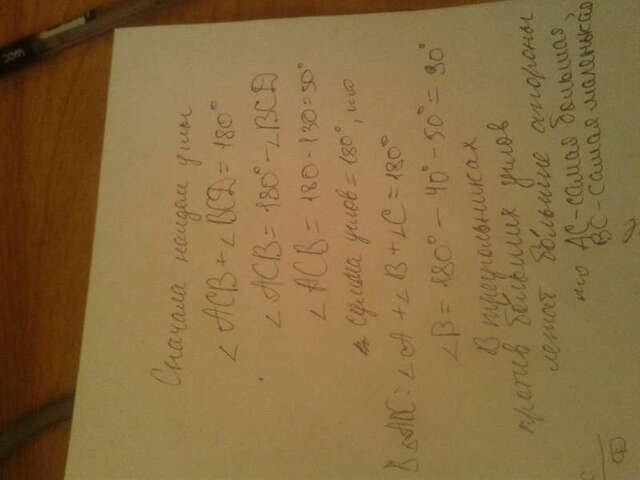 Сначала найдем углы
∠ACB + ∠BCD = 180°
∠ACB = 180° - ∠BCD
∠ACB = 180 - 130 = 50°
сумма углов = 180°, то
В △ABC: ∠A + ∠B + ∠C = 180°
∠B = 180° - 40° - 50° = 90°
В треугольниках
против больших углов
лежат большие стороны
то AC - самая большая
BC - самая маленькая